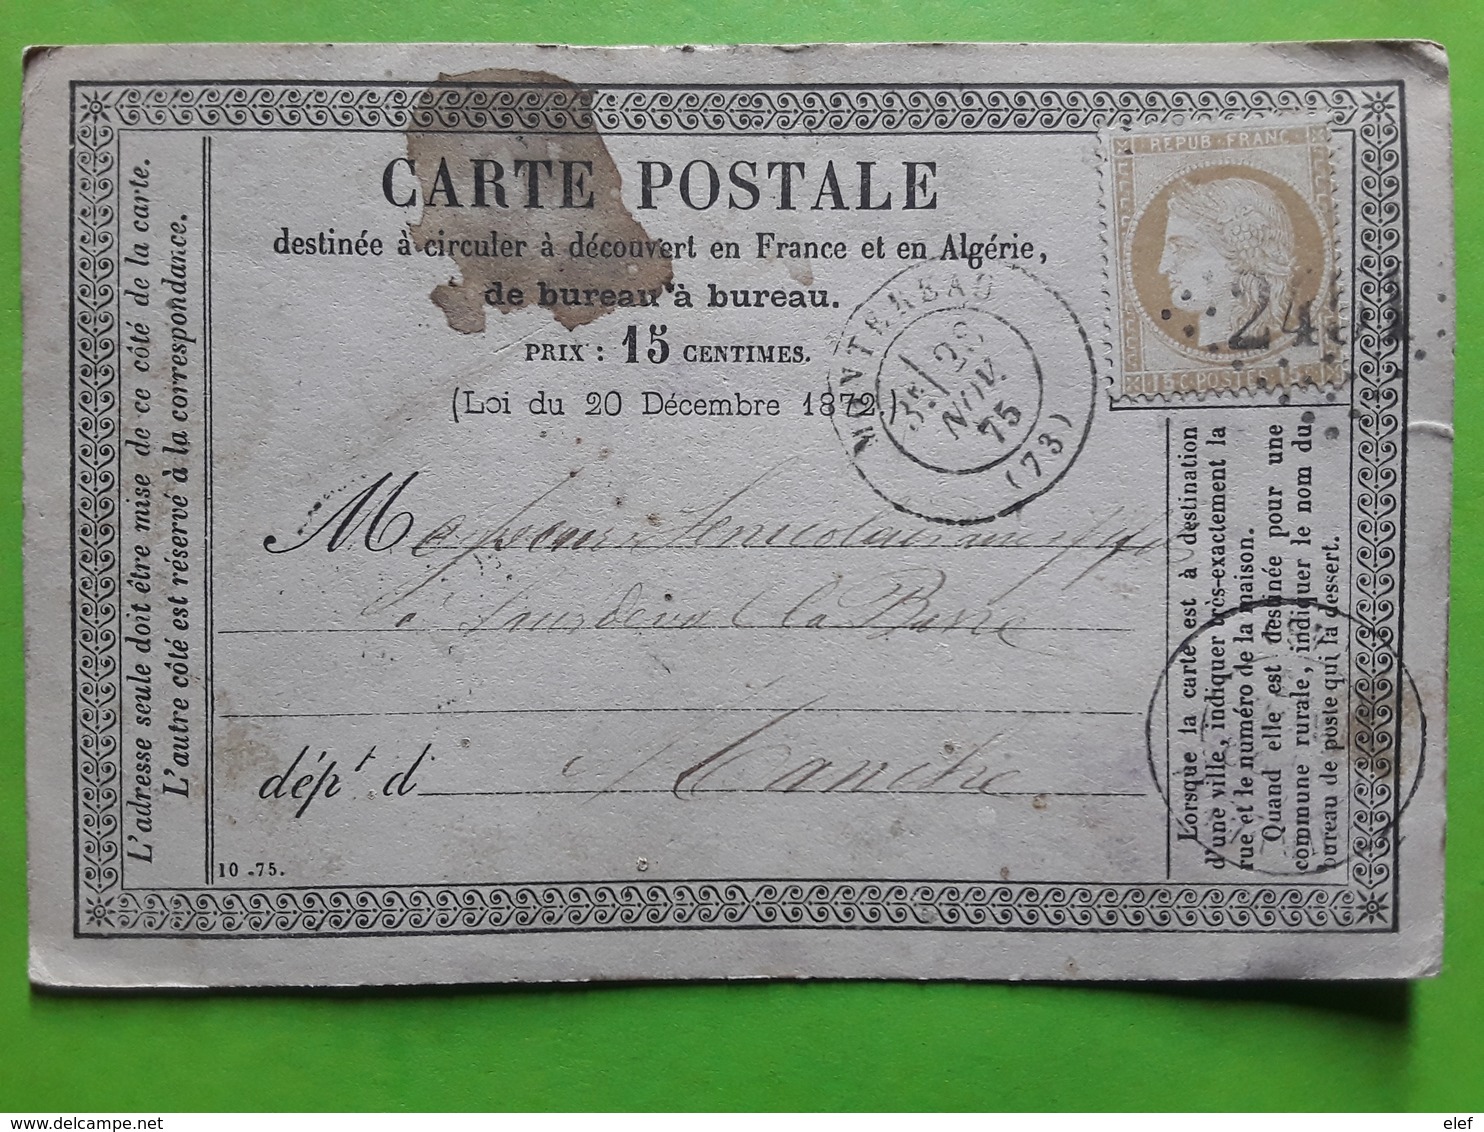 CARTE POSTALE
destinée à circuler à découvert en France et en Algérie,
de bureau à bureau.
PRIX : 15 CENTIMES.
(Loi du 20 Décembre 1872.)
REPUB. FRANC.
15 C. POSTES 15 C.
MONTEREAU
3E/ 28
NOV.
75
(73)
L'adresse seule doit être mise de ce côté de la carte.
L'autre côté est réservé à la correspondance.
M
à Sourdeval la Barre
dépt d Manche
10 -75.
Lorsque la carte est à destination
d'une ville, indiquer très-exactement la
rue et le numéro de la maison.
Quand elle est destinée pour une
commune rurale, indiquer le nom du
bureau de poste qui la dessert.
elef